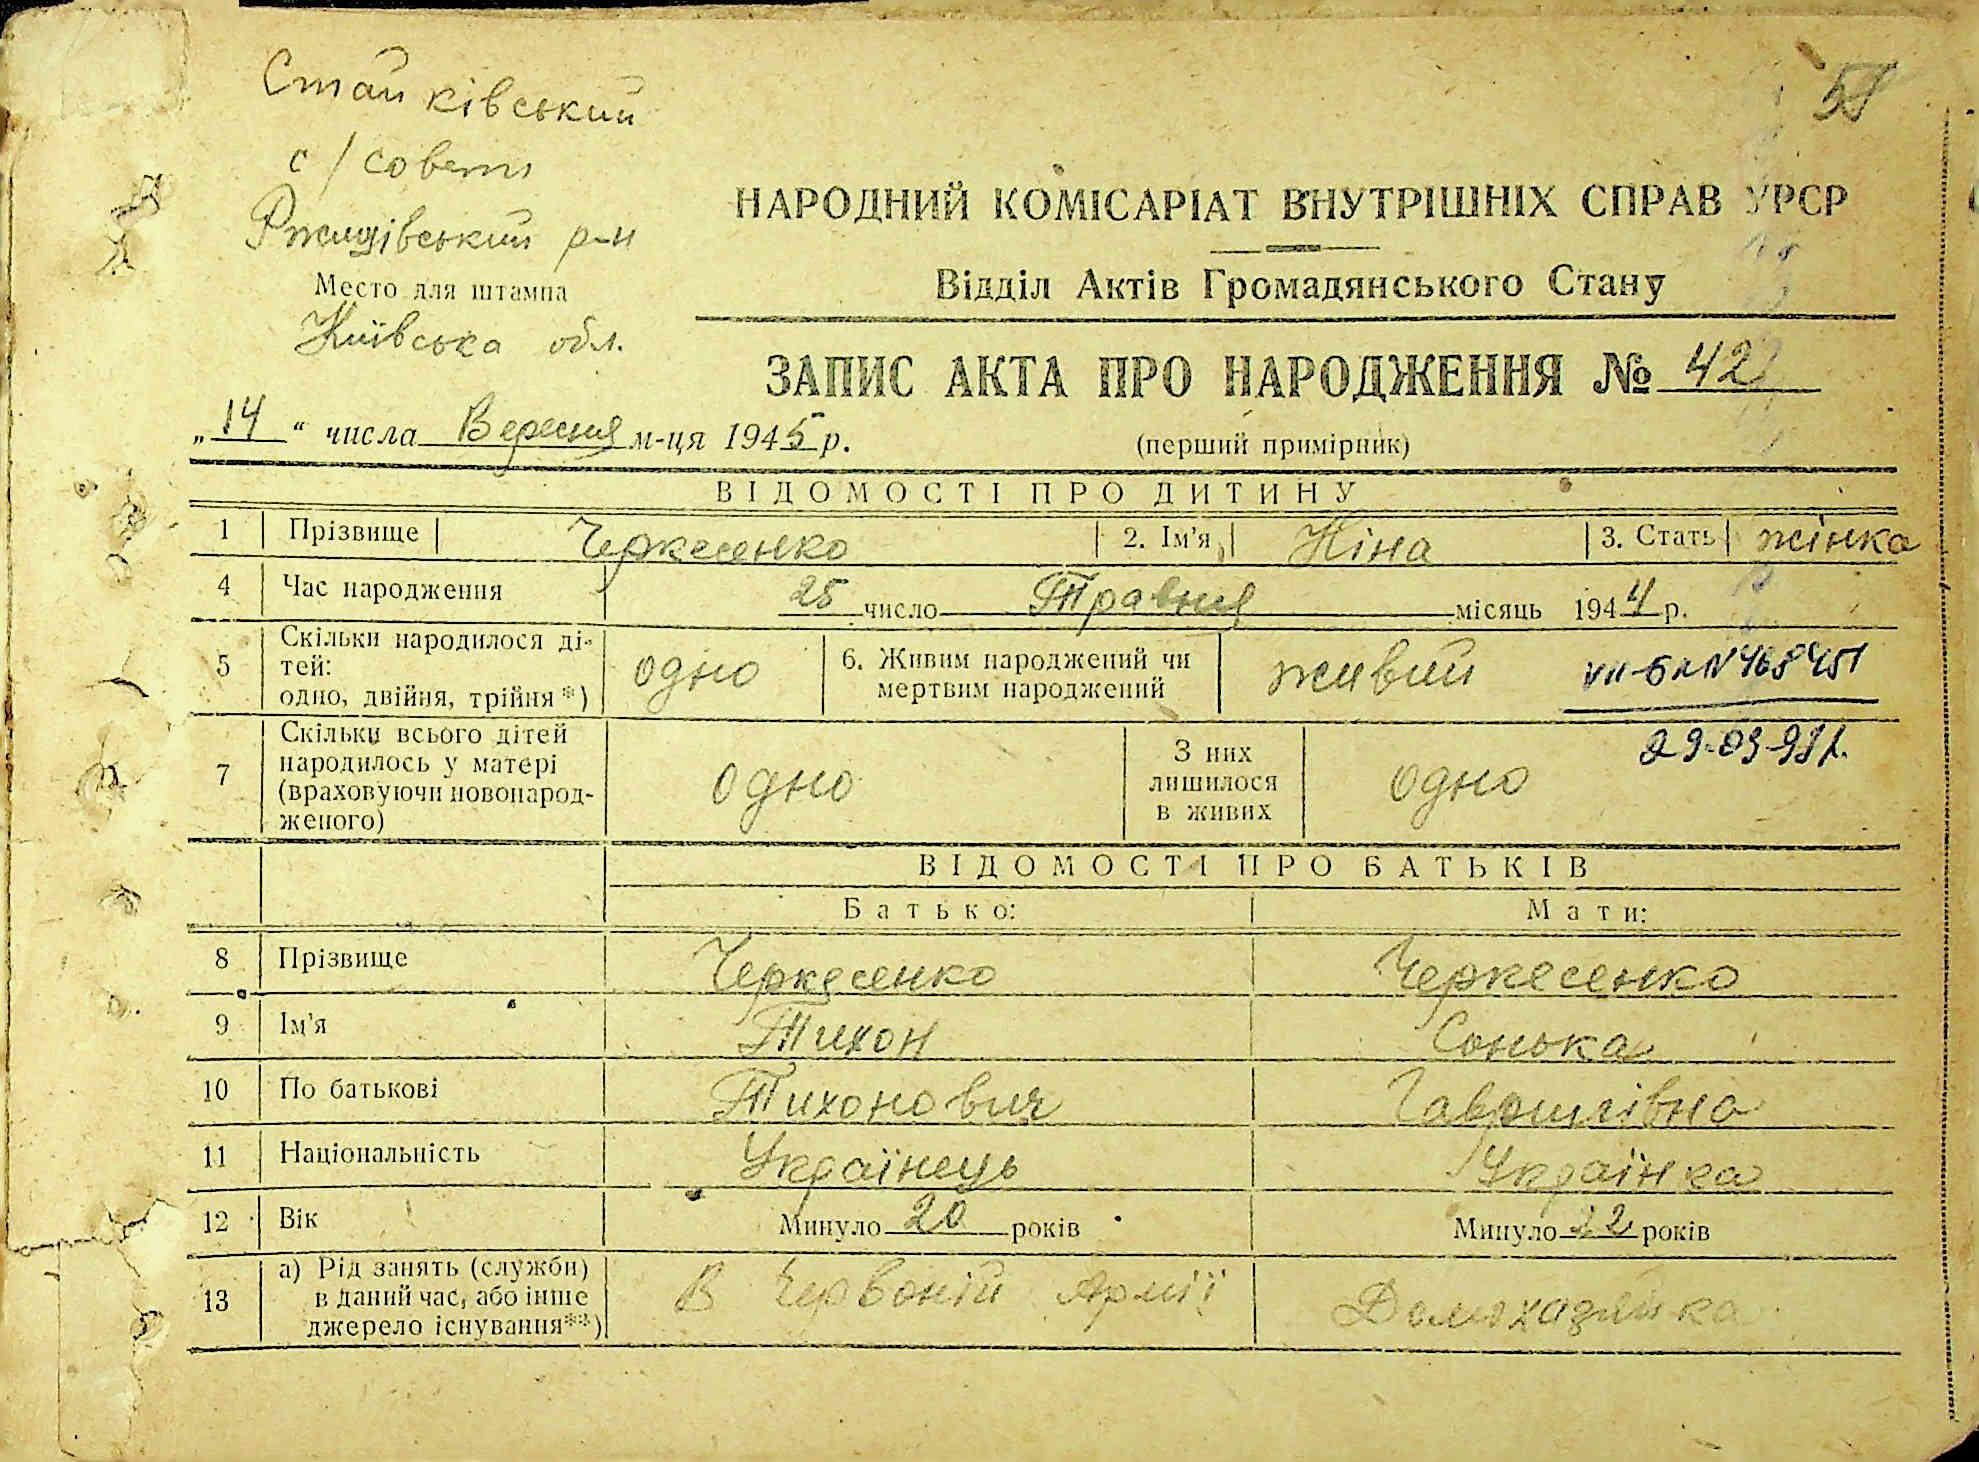 Стайківський
58
с/совет
Ржищівський р-н
НАРОДНИЙ КОМІСАРІАТ ВНУТРІШНІХ СПРАВ УРСР
Место для штампа
Відділ Актів Громадянського Стану
Київська обл.
ЗАПИС АКТА ПРО НАРОДЖЕННЯ № 42
„14“ числа Вересня м-ця 1945 р.
(перший примірник)
ВІДОМОСТІ ПРО ДИТИНУ
1 Прізвище Черкесенко 2. Ім'я Ніна 3. Стать жінка
4 Час народження 25 число Травня місяць 1944 р.
5 Скільки народилося ді-
тей:
одно, двійня, трійня *) одно 6. Живим народжений чи
мертвим народжений живий
VII-БК N 468451
7 Скільки всього дітей
народилось у матері
(враховуючи новонарод-
женого) одно З них
лишилося
в живих одно
29-03-91р.
ВІДОМОСТІ ПРО БАТЬКІВ
Батько: Мати:
8 Прізвище Черкесенко Черкесенко
9 Ім'я Тихон Сонька
10 По батькові Тихонович Гаврилівна
11 Національність Українець Українка
12 Вік Минуло 20 років Минуло 22 років
13 а) Рід занять (служби)
в даний час, або інше
джерело існування**) В Червоній Армії Домохазяйка